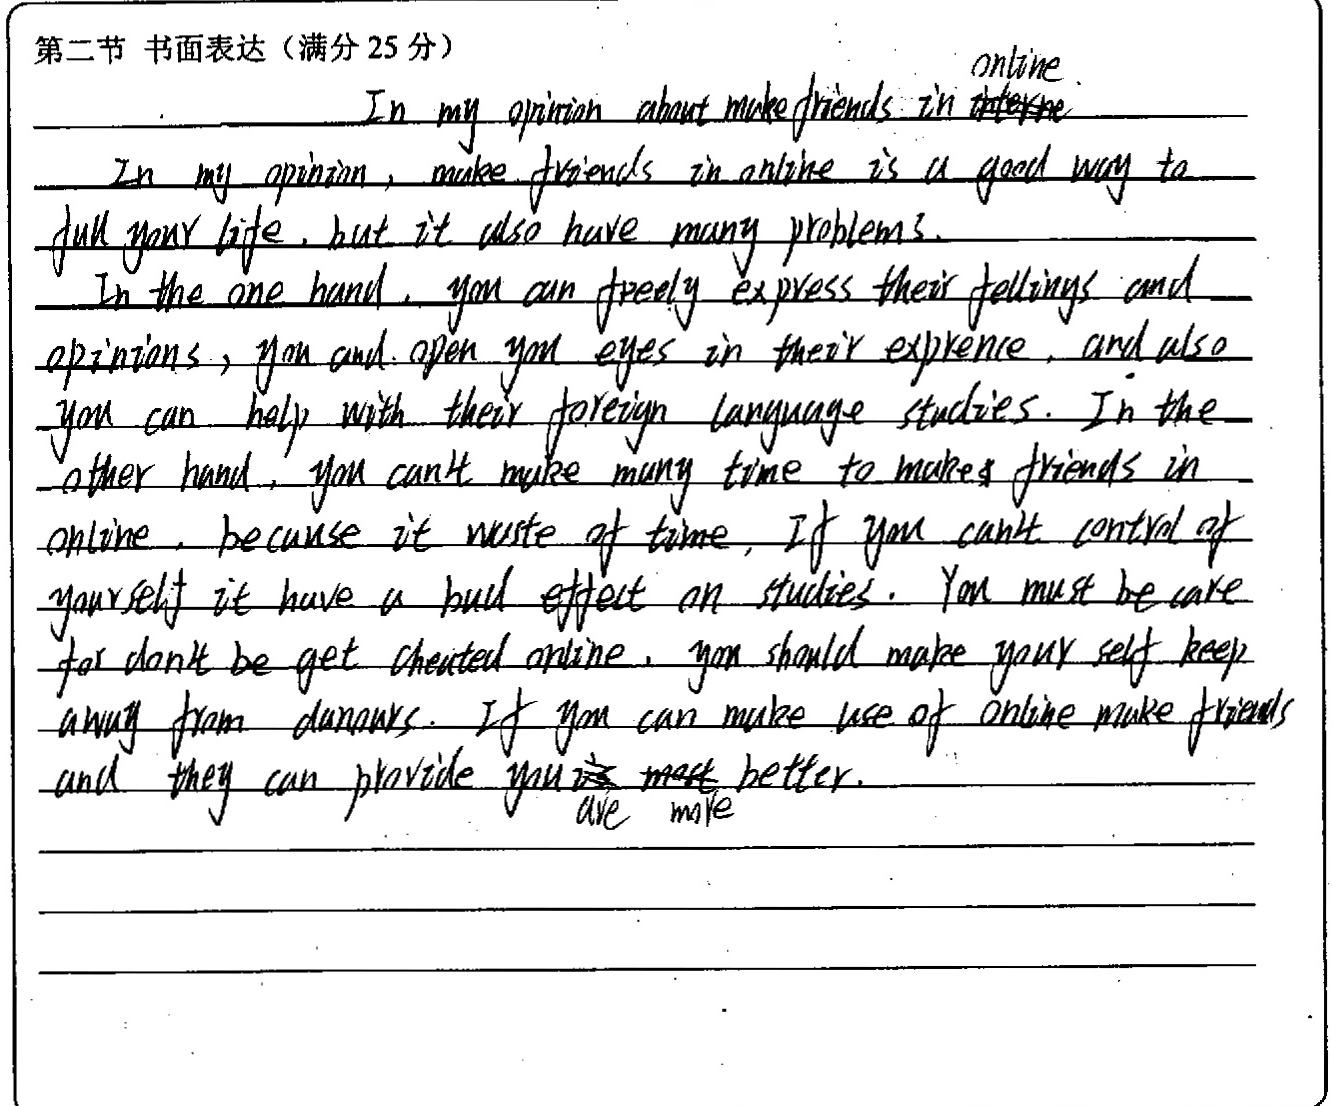 第二节 书面表达（满分 25 分）
In my opinion about make friends in online
In my opinion, make friends in online is a good way to
full your life. but it also have many problems.
In the one hand. you can freely express their fellings and
opinions, you and open you eyes in their exprence. and also
you can help with their foreign language studies. In the
other hand, you can't make many time to makes friends in
online. because it waste of time. If you can't control of
yourself it have a bad effect on studies. You must be care
for don't be get cheated online. you should make your self keep
away from danours. If you can make use of online make friends
and they can provide you are more better.